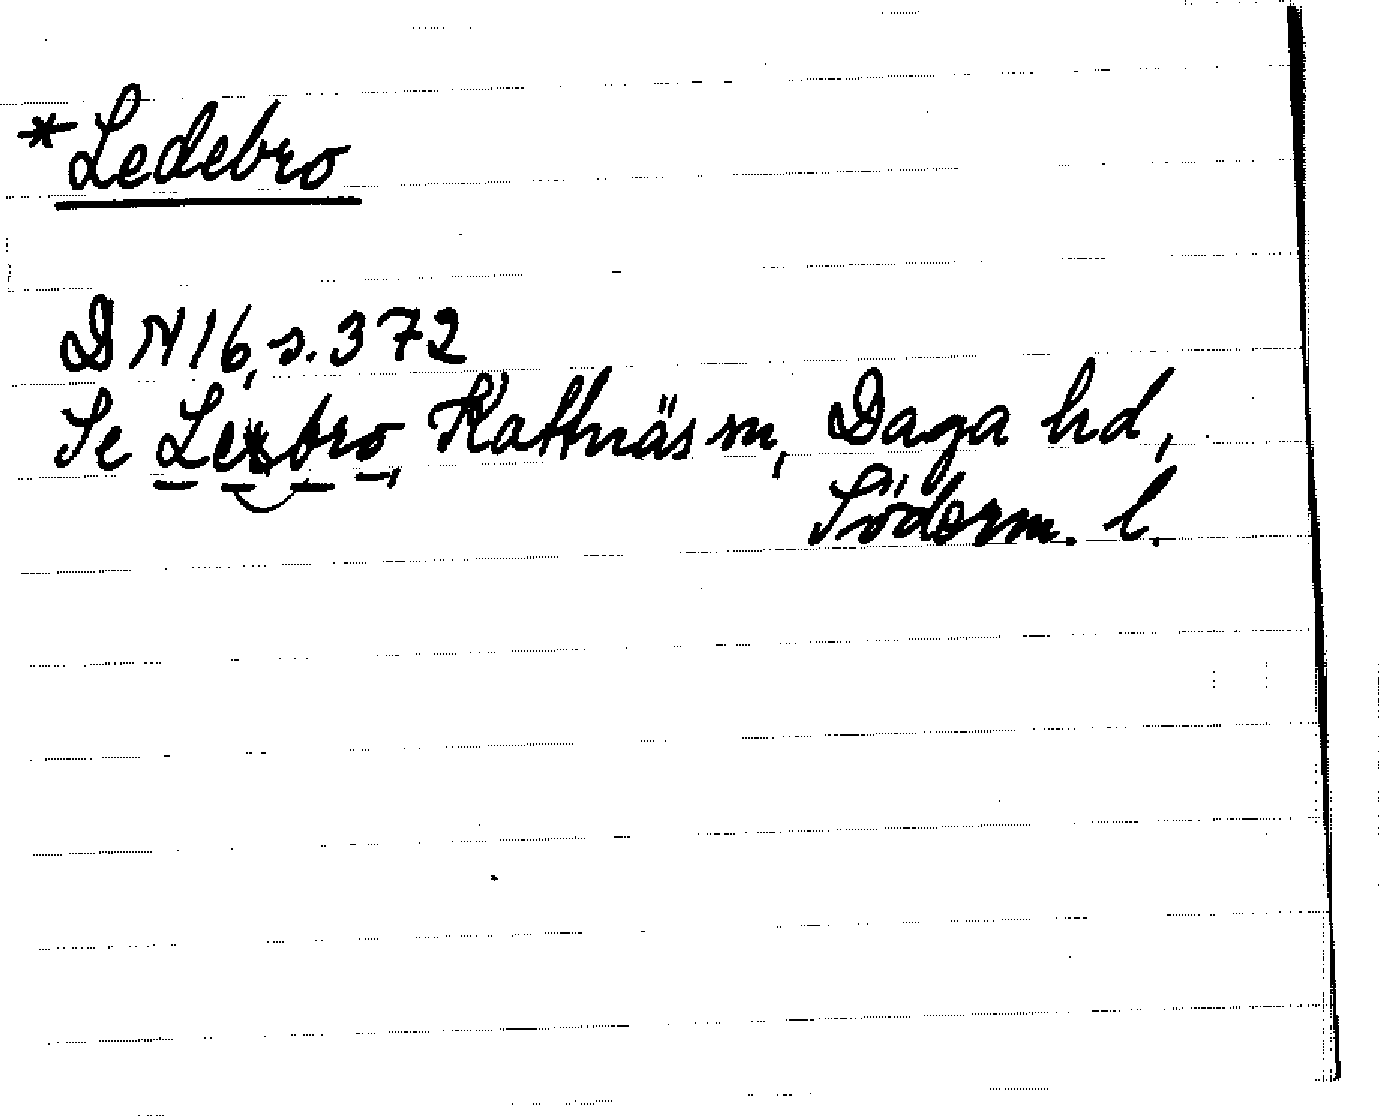 *Ledebro
DN 16, s. 372
Se Lebro, Kattnäs sn, Daga hd,
Söderm. l.